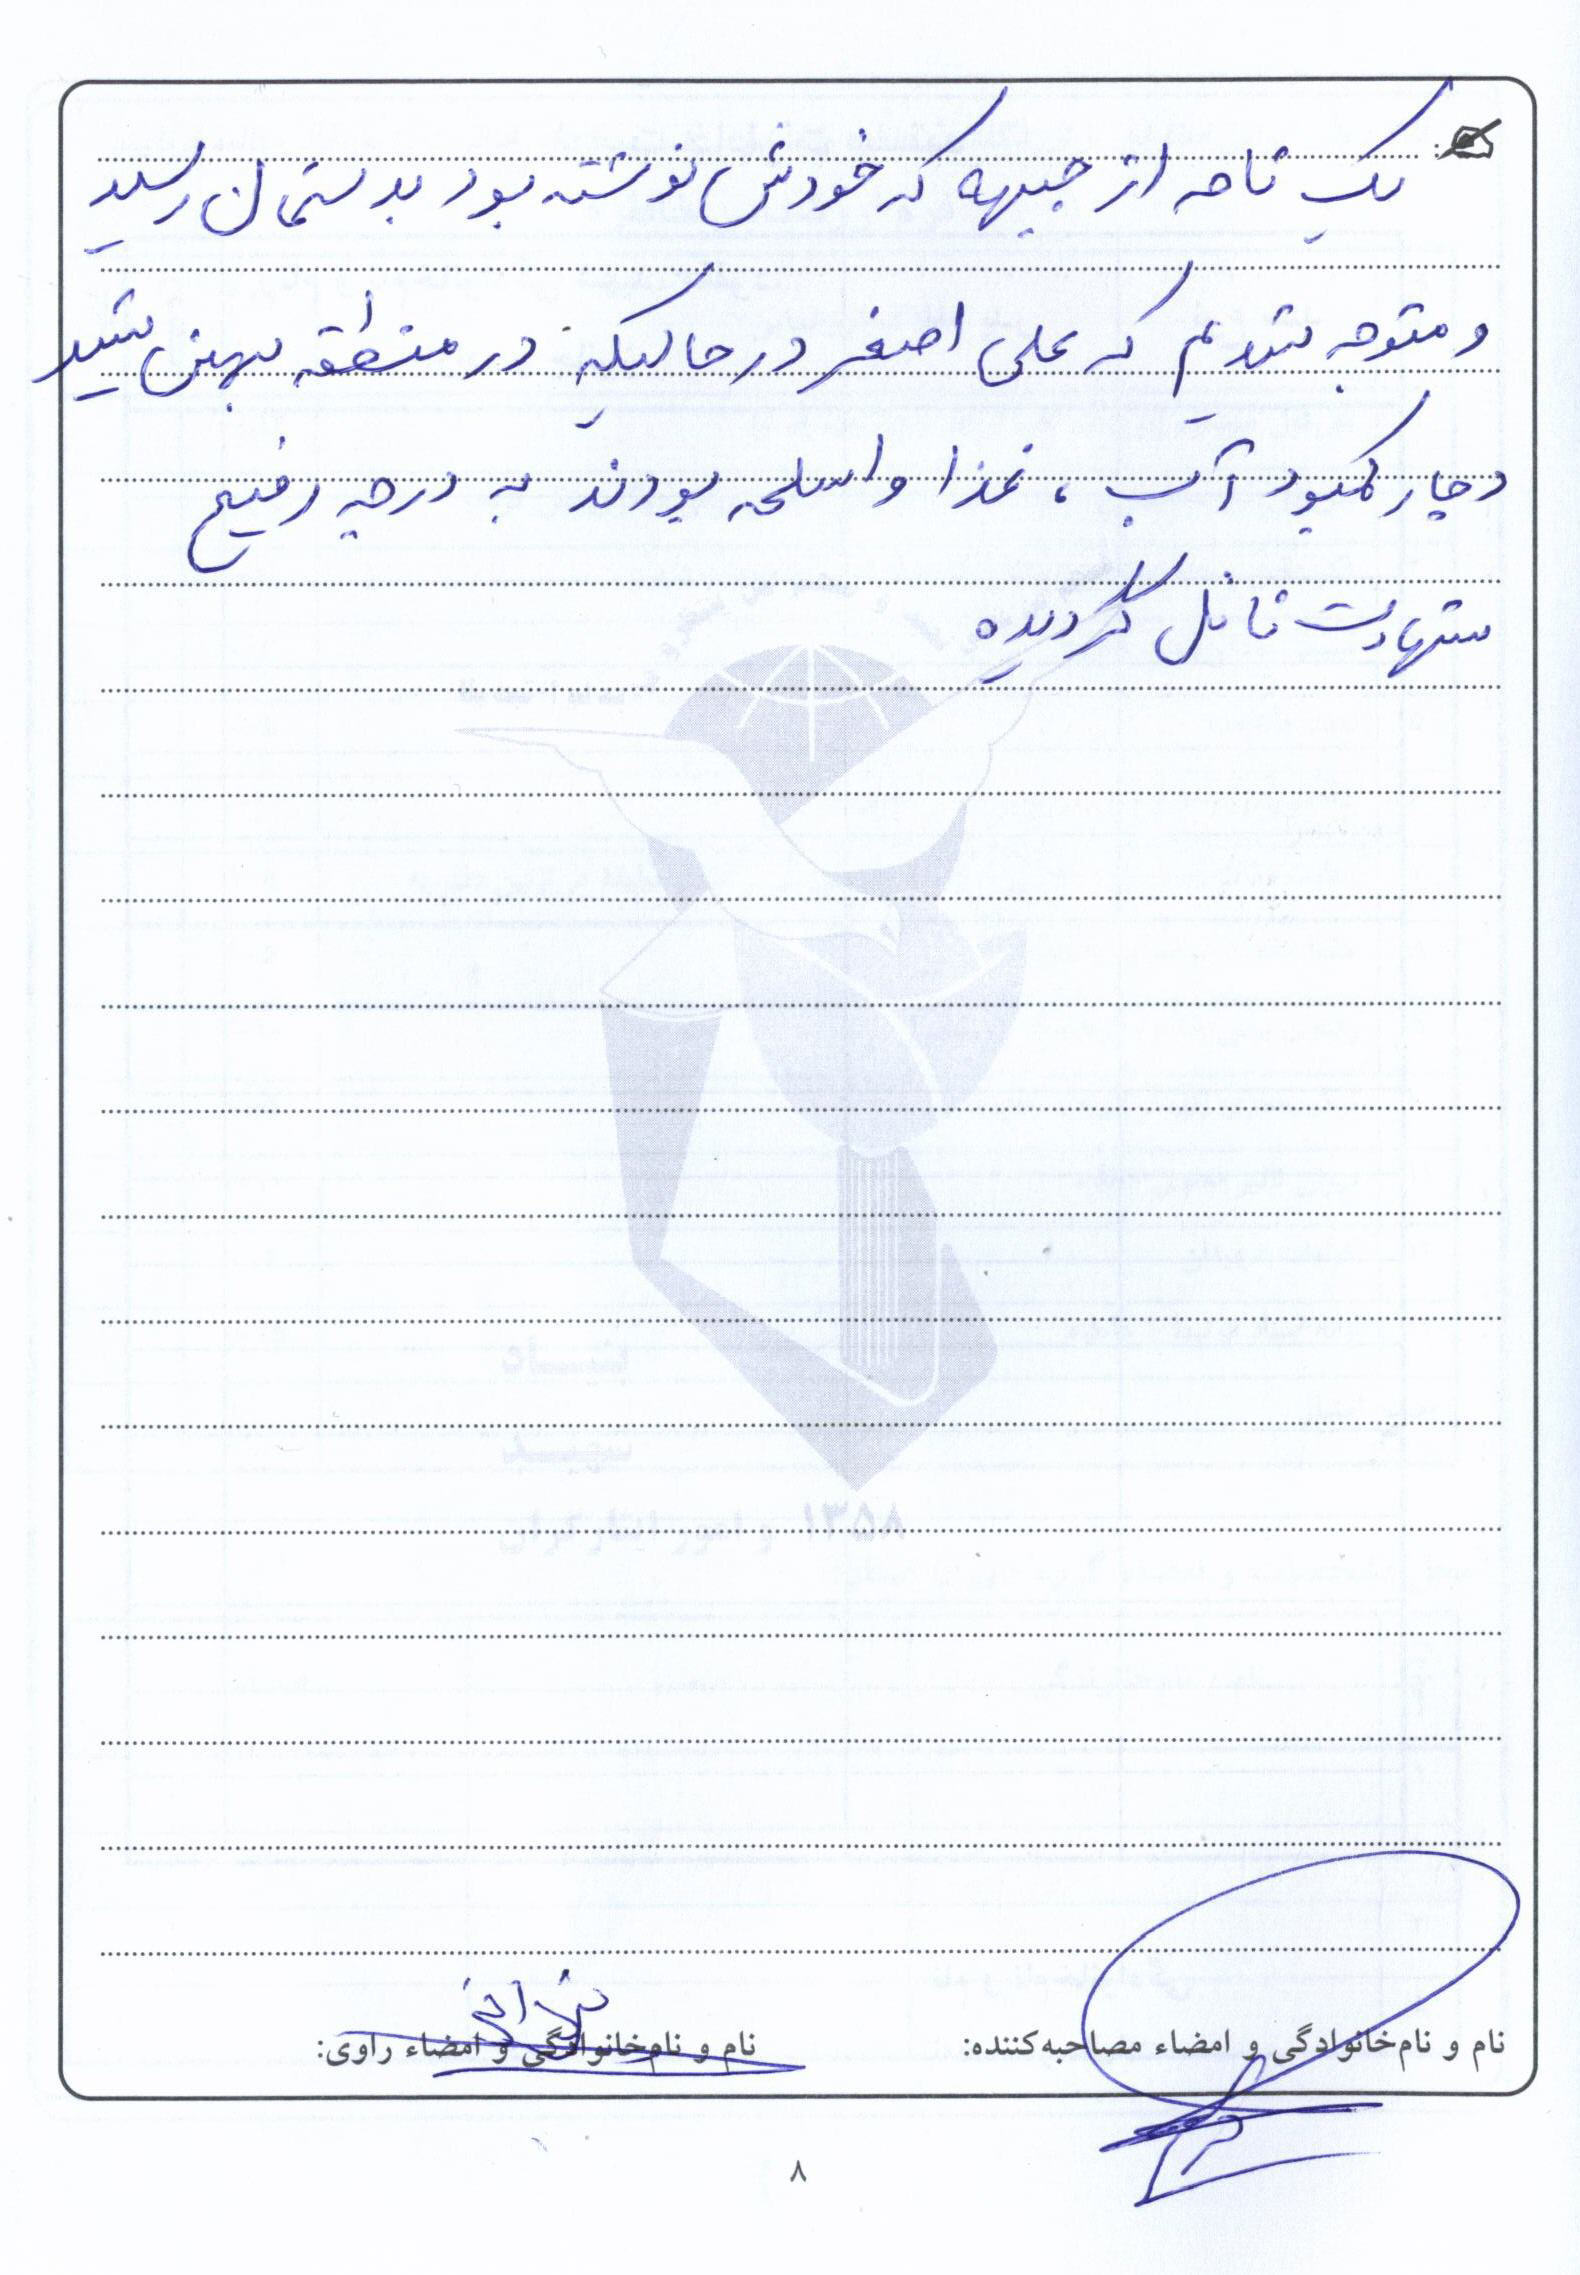 یک نامه از جبهه که خودش نوشته بود بدستمان رسید
و متوجه شدیم که علی اصغر در حالیکه در منطقه
دچار کمبود آب ، غذا و اسلحه بودند به درجه رفیع
شهادت نائل گردیده
۱۳۵۸
نام و نام‌خانوادگی و امضاء مصاحبه‌کننده:
نام و نام‌خانوادگی و امضاء راوی:
۸